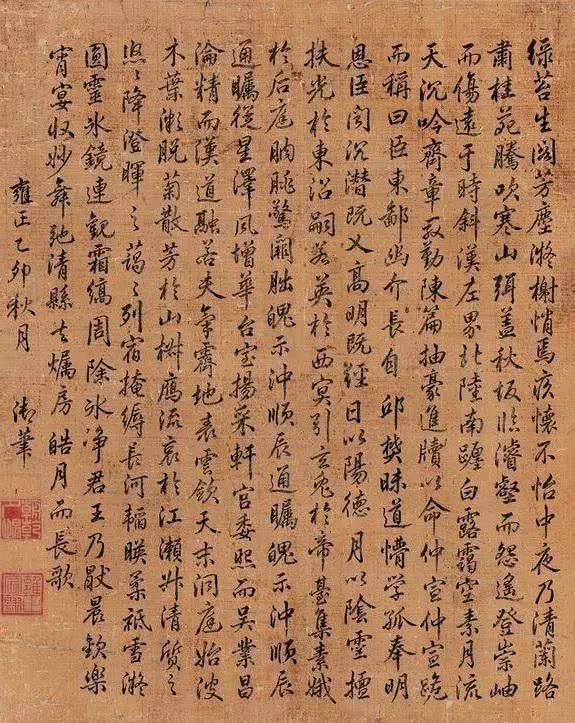 綠苔生閣芳塵凝榭悄焉疚懷不怡中夜乃清蘭路
肅桂苑騰吹寒山弭蓋秋坂臨濬壑而怨遙登崇岫
而傷遠于時斜漢左界北陸南躔白露靄空素月流
天沉吟齊章殷勤陳篇抽豪進牘以命仲宣仲宣跪
而稱曰臣東鄙幽介長自邱樊昧道懵學孤奉明
恩臣聞沉潛既义高明既經日以陽德月以陰靈擅
扶光於東沼嗣若英於西冥引玄兔於帝臺集素娥
於后庭朒朓驚闕朏魄示沖順辰通矚魄示沖順辰
通矚從星澤風增華台室揚采軒宮委照而吳業昌
淪精而漢道融若夫氣霽地表雲斂天末洞庭始波
木葉漸脫菊散芳於山椒鴈流哀於江瀨升清質之
悠〻降澄暉之藹〻列宿掩縟長河韜暎柔祇雪凝
圓靈水鏡連觀霜縞周除冰净君王乃猒晨歡樂
宵宴收妙舞弛清縣去燭房皓月而長歌
雍正乙卯秋月
御筆